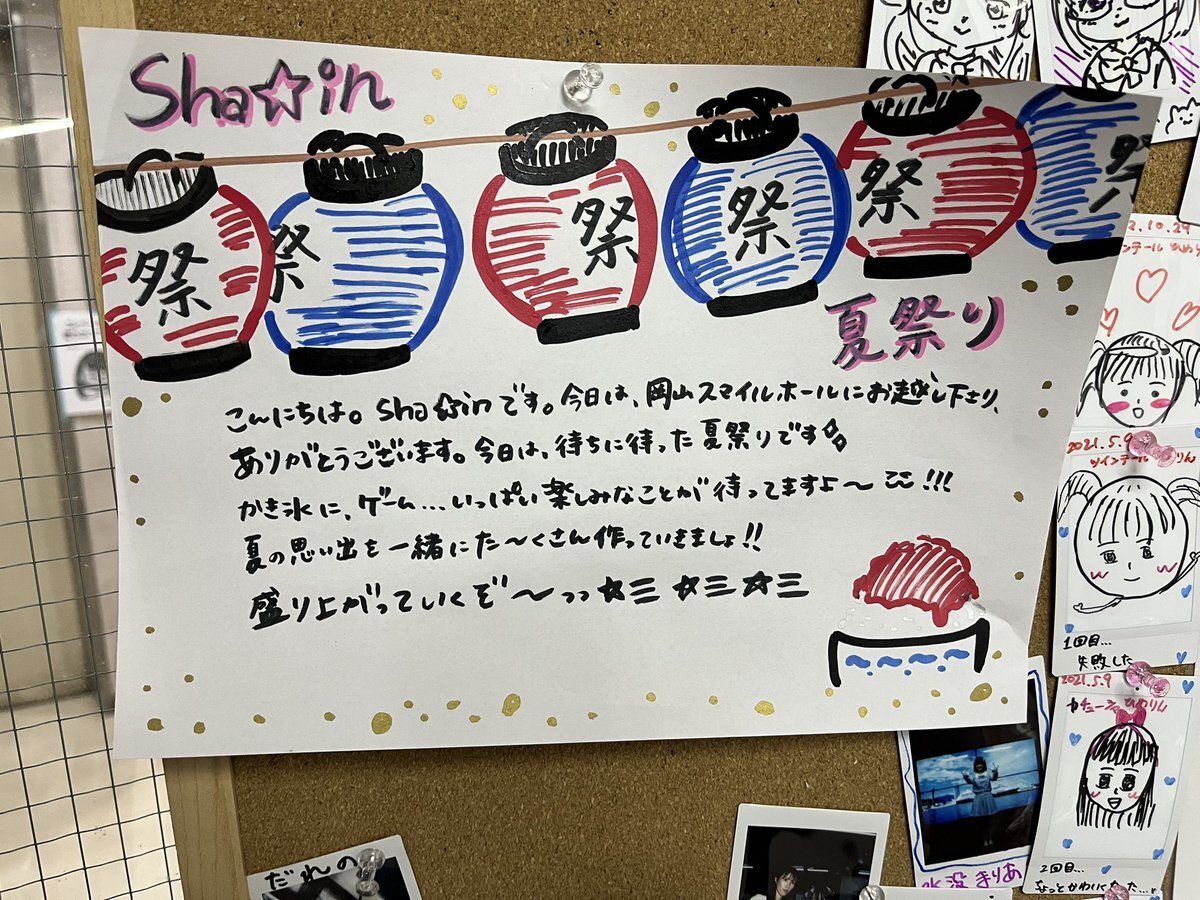 Sha☆in
祭
祭
祭
祭
祭
祭
夏祭り
こんにちは。Sha☆inです。今日は、岡山スマイルホールにお越し下さり、
ありがとうございます。今日は、待ちに待った夏祭りです
かき氷に、ゲーム…いっぱい楽しみなことが待ってますよ〜!!!
夏の思い出を一緒にた〜くさん作っていきましょ!!
盛り上がっていくぞ〜っっ☆三 ☆三 ☆三
2.10.29
ツインテール
2021.5.9
ツインテール りん
1回目…
失敗した
2021.5.9
カチューシャ りん
2回目…
ちょっとかわいくなった…
水没まりあ
だれの